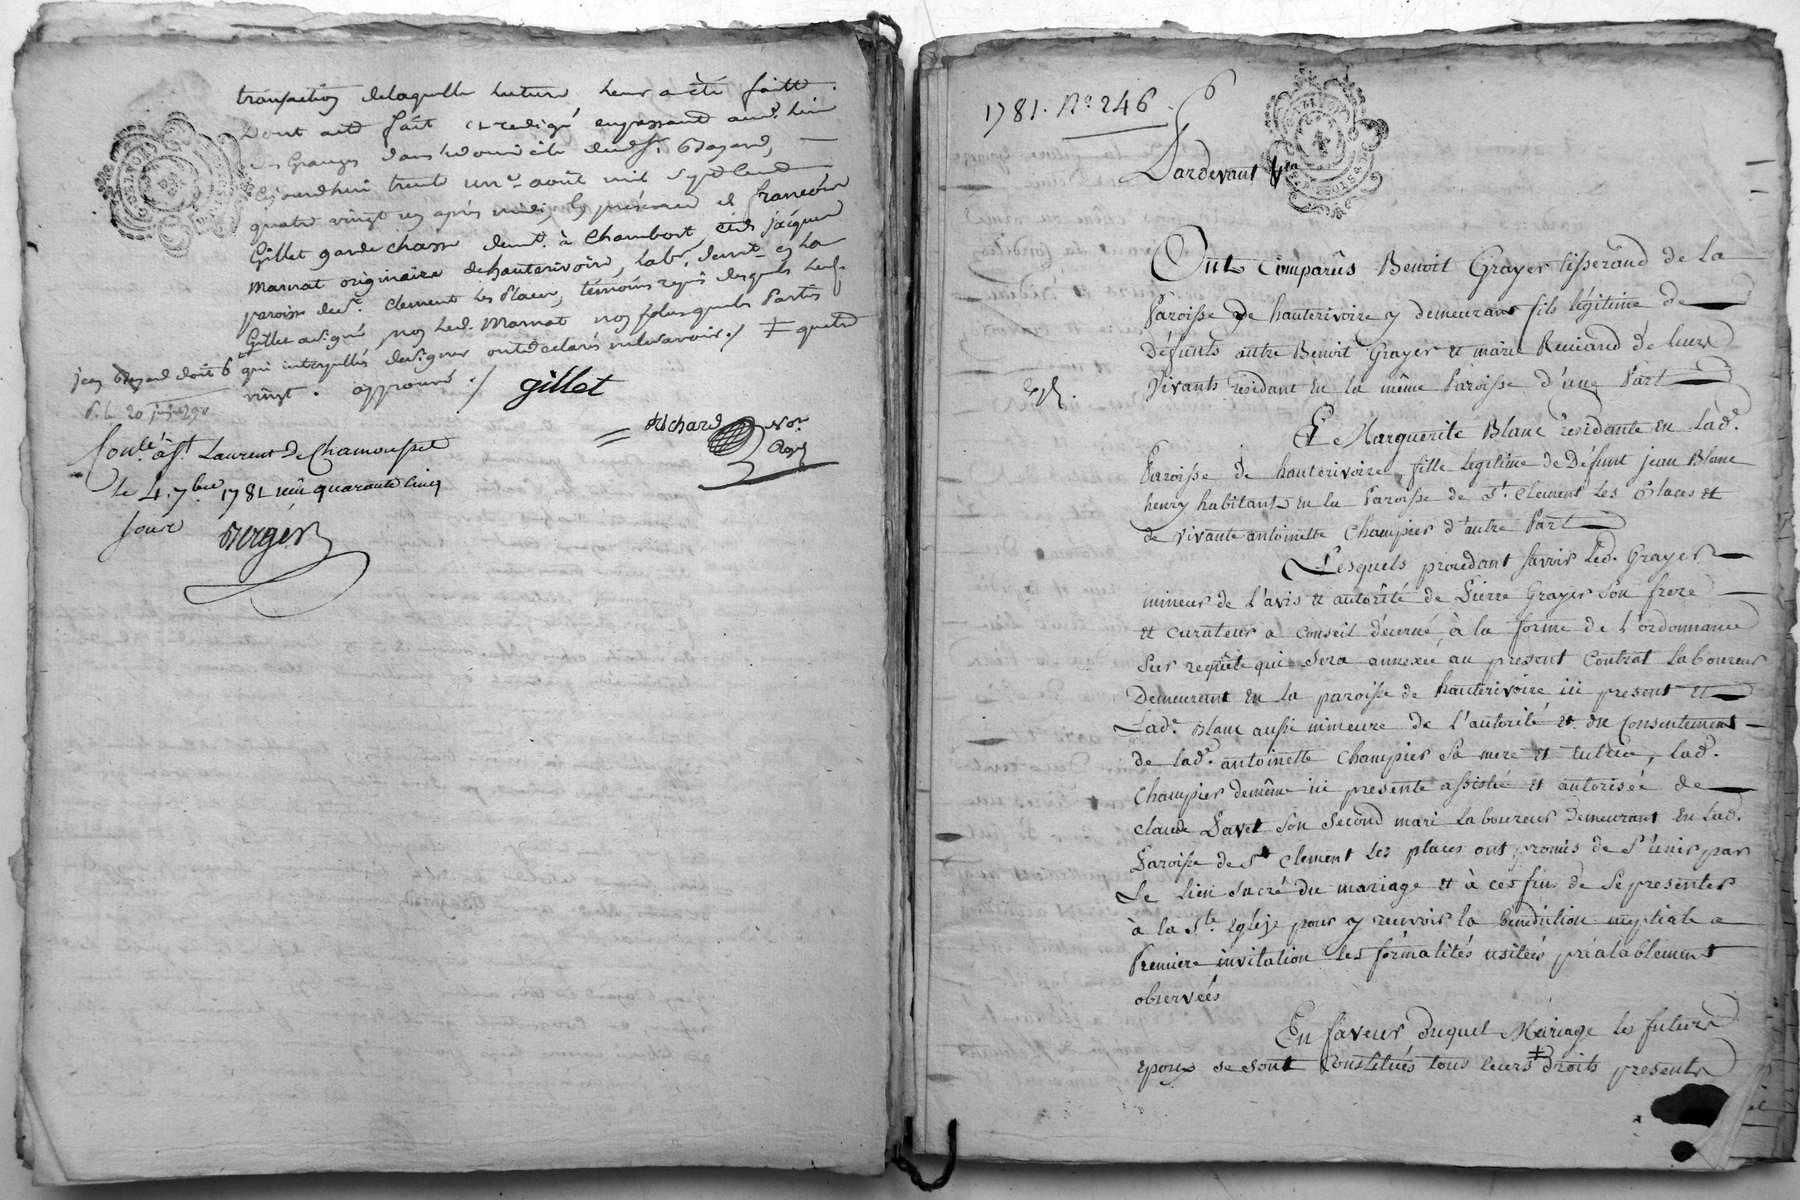 transaction delaquelle lecture leur a été faitte.
Dont acte fait et redigé
des Granges dans le domicile dud. Sr.
Cejourdhui trente un e. août mil sept cent
quatre vingt un après midy En présence de francois
Gillet garde chasse demt. à Chambost, et de jacques
Marnat originaire de hauterivoire, labr. demt. en la
paroisse de St. Clement les Places, témoins requis desquels led.
Gillet a signé, non led. Marnat non plus que les Parties
qui interpellés de signer ont declarés ne le savoir ./. ‡ quatre
vingt. approuvé ./.
gillet
jean doit 6
P. le 20
Richard Nore.
Royl
Conlé. à St. Laurent de Chamousset
le 4. 7bre 1781 reçu quarante cinq
sous Berger
1781. No. 246.
Pardevant
Ont Comparûs Benoit Grayer tisserand de la
Paroisse de hauterivoire y demeurant fils légitime de
Défunts autre Benoit Grayer et marie de leurs
Vivants résidant en la même Paroisse d'une Part
Expé.
Et Marguerite Blanc résidante en Lade.
Paroisse de hauterivoire, fille legitime de Défunt jean Blanc
henry habitant en la Paroisse de St. Clement les Places et
de vivante antoinette Champier d'autre Part
Lesquels procédant savoir Led. Grayer
mineur de l'avis et autorité de Pierre Grayer Son frere
et curateur a conseil décerné, à la forme de l'ordonnance
Sur requête qui Sera annexée au present Contrat Laboureur
Demeurant en la paroisse de hauterivoire ici present et
Lade. Blanc aussi mineure de l'autorité et du Consentement
de lade. antoinette Champier Sa mere et tutrice, lade.
Champier de même ici presente assistée et autorisée de
claude Pavet Son Second mari Laboureur Demeurant en Lade.
Paroisse de St. Clement les places ont promis de S'unir par
Le Lien Sacré du mariage et à ces fins de Se presenter
à la Ste. Eglise pour y recevoir la bénédiction nuptiale a
Premiere invitation les formalités usitées préalablement
observées
En faveur Duquel Mariage les futurs
Epoux se sont Constitués tous leurs ‡ Droits presents